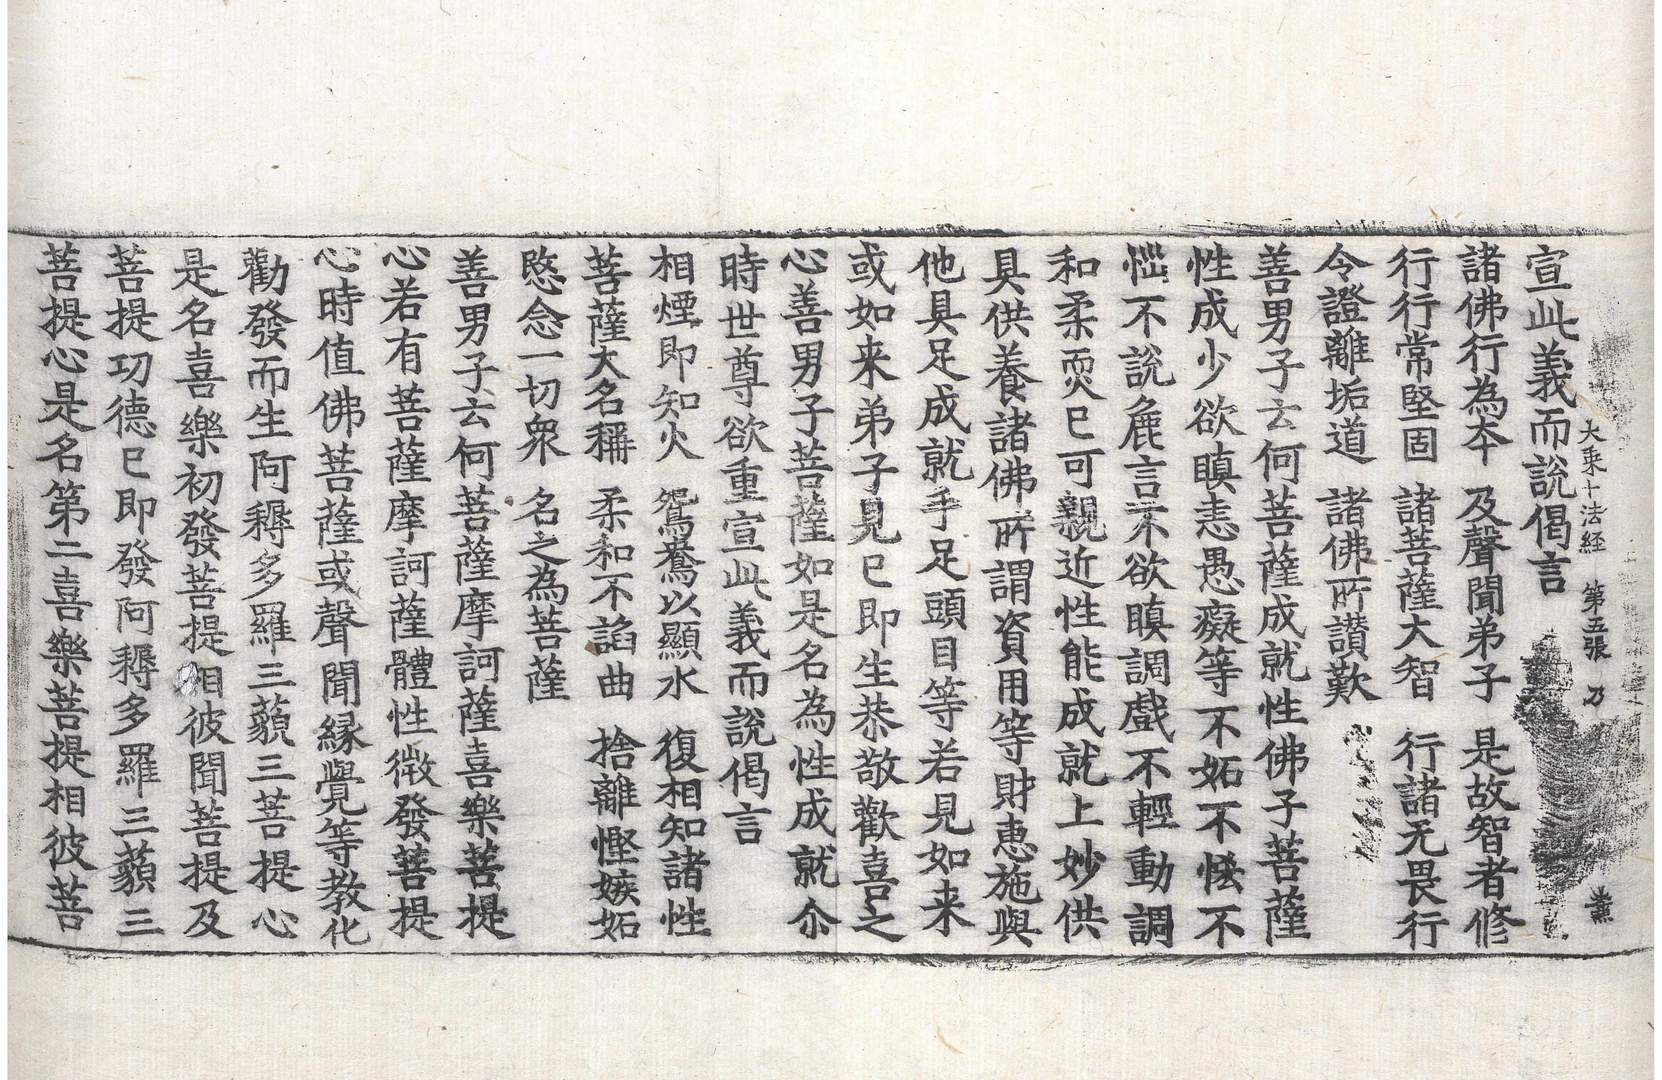 宣此義而說偈言
大乘十法経　第五張　乃
諸佛行為夲　及聲聞弟子　是故智者修
行行常堅固　諸菩薩大智　行諸无畏行
令證離垢道　諸佛所讃歎
善男子云何菩薩成就性佛子菩薩
性成少欲瞋恚愚癡等不妬不悋不
惱不說麁言不欲瞋調戲不輕動調
和柔耎巳可親近性能成就上妙供
具供養諸佛所謂資用等財惠施與
他具足成就手足頭目等若見如来
或如来弟子見巳即生恭敬歡喜之
心善男子菩薩如是名為性成就尒
時世尊欲重宣此義而說偈言
相煙即知火　鴛鴦以顯水　復相知諸性
菩薩大名稱　柔和不諂曲　捨離慳嫉妬
愍念一切衆　名之為菩薩
善男子云何菩薩摩訶薩喜樂菩提
心若有菩薩摩訶薩體性微發菩提
心時值佛菩薩或聲聞縁覺等教化
勸發而生阿耨多羅三藐三菩提心
是名喜樂初發菩提相彼聞菩提及
菩提功德巳即發阿耨多羅三藐三
菩提心是名第二喜樂菩提相彼菩